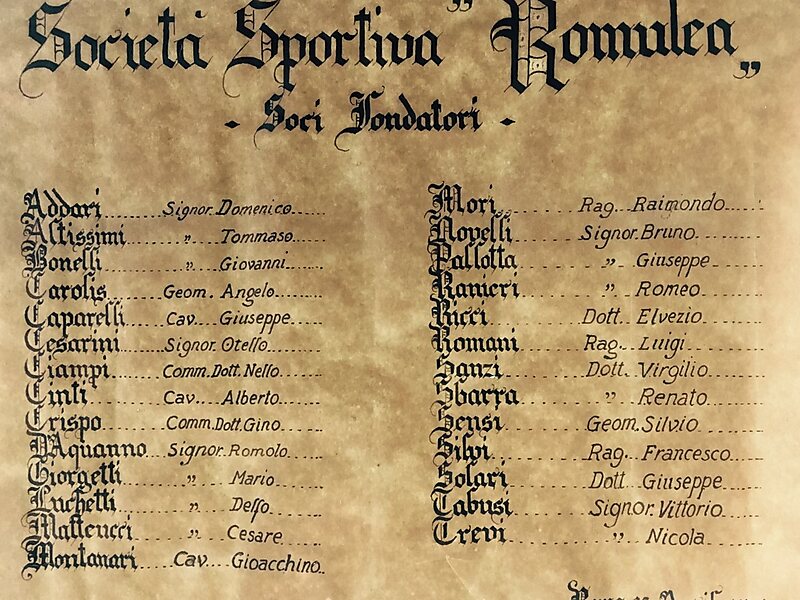 Società Sportiva " Romulea „
- Soci Fondatori -
Addari...... Signor. Domenico......
Altissimi " Tommaso......
Bonelli " Giovanni......
Carolis...... Geom. Angelo......
Caparelli Cav.... Giuseppe......
Cesarini Signor. Otello......
Ciampi...... Comm. Dott. Nello......
Cinti...... Cav... Alberto......
Crispo...... Comm. Dott. Gino......
D'Aquanno Signor. Romolo......
Giorgetti " Mario......
Luchetti " Delfo......
Matteucci " Cesare......
Montanari Cav.... Gioacchino..
Mori...... Rag... Raimondo......
Novelli Signor. Bruno......
Pallotta " Giuseppe......
Ranieri " Romeo......
Ricci...... Dott. Elvezio......
Romani Rag... Luigi......
Sanzi...... Dott. Virgilio......
Sbarra " Renato......
Sensi...... Geom. Silvio......
Silvi...... Rag... Francesco......
Solari...... Dott Giuseppe......
Tabusi...... Signor. Vittorio......
Trevi...... " Nicola......